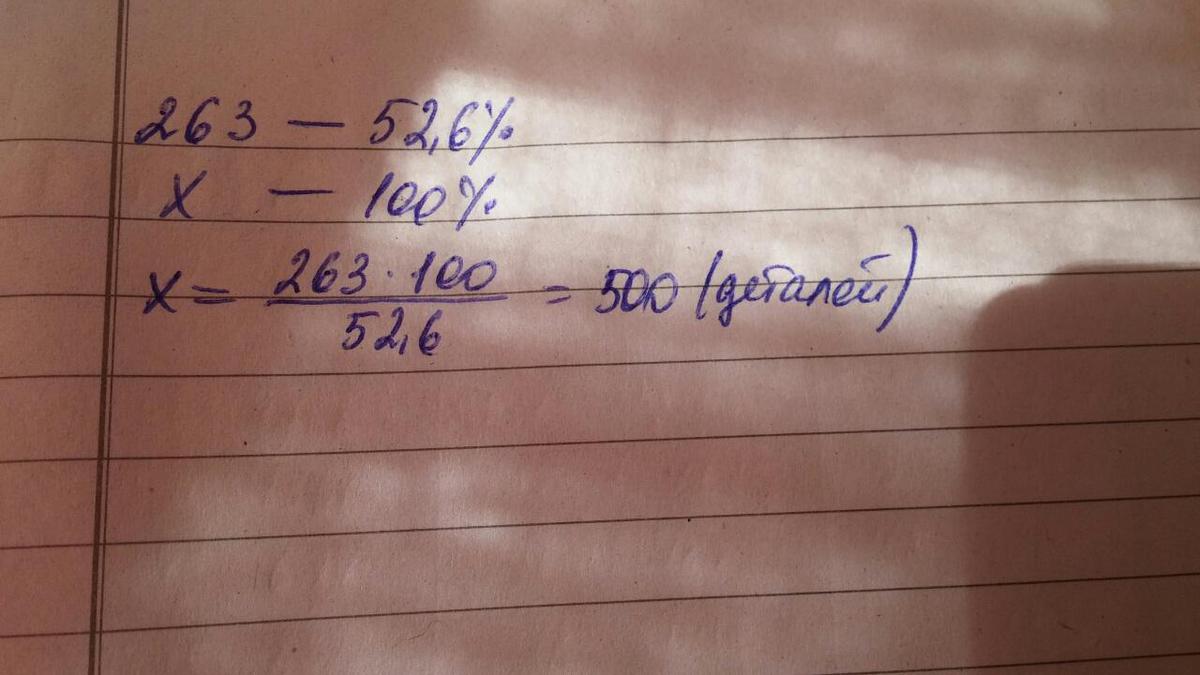 263 — 52,6%
x — 100%
x = 263 · 100 / 52,6 = 500 (деталей)